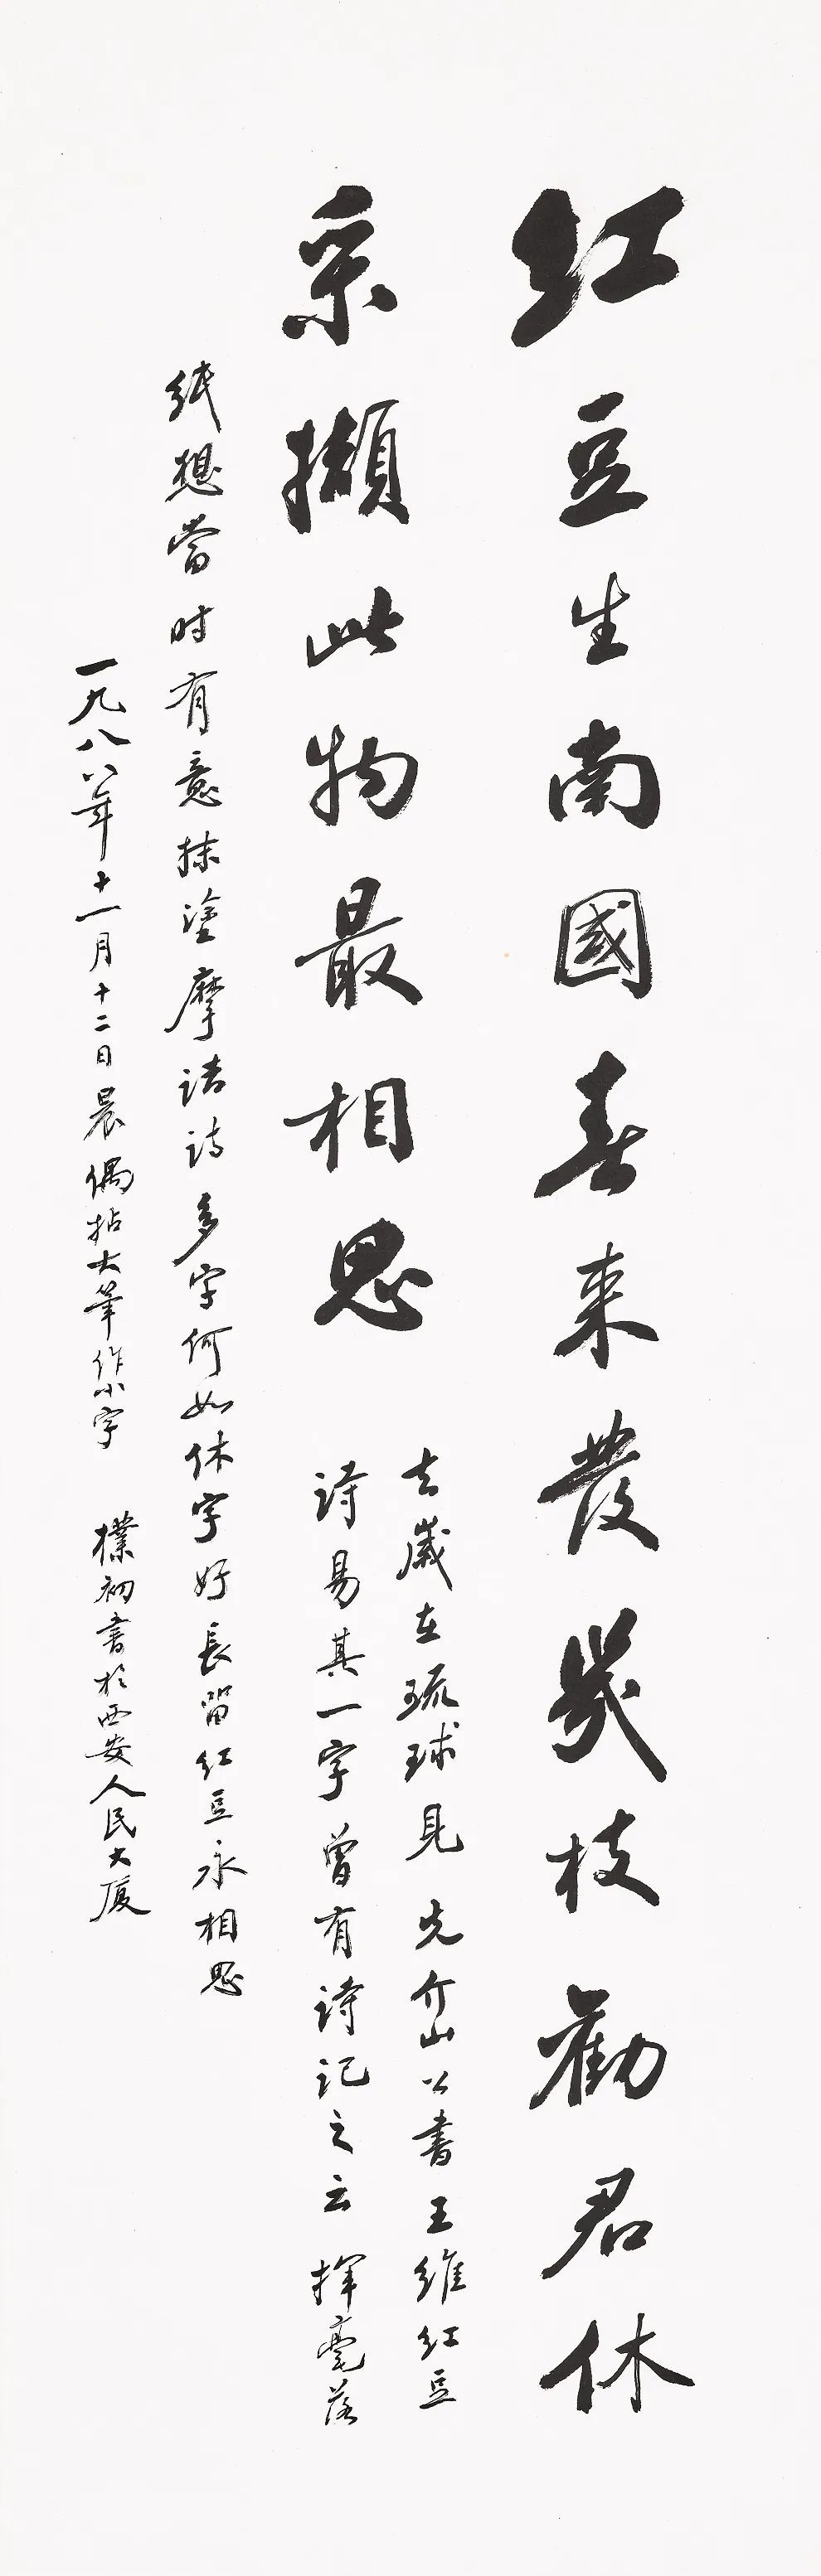 红豆生南國春来發幾枝勸君休
采擷此物最相思
去歲在琉球見先介山公書王維红豆
詩易其一字曾有詩記之云揮毫落
紙想當时有意抹塗摩诘詩多字何如休字好長留红豆永相思
一九八八年十一月十二日晨偶拈大筆作小字 樸初書於西安人民大厦